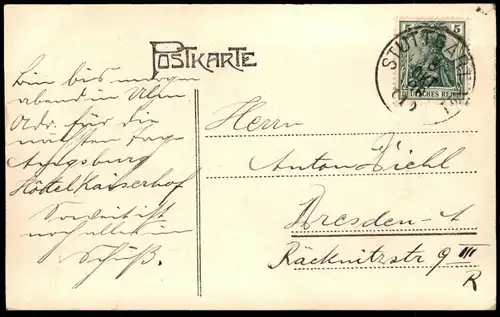 POSTKARTE
5 5
DEUTSCHES REICH
STUTTGART
Bin bis morgen
abend in Ulm
Adr. für die
nächsten Tage
Augsburg
Hôtel Kaiserhof
Soweit ist
noch alles in
Herrn
Anton Diehl
Dresden-A
Räcknitzstr 9 III
R